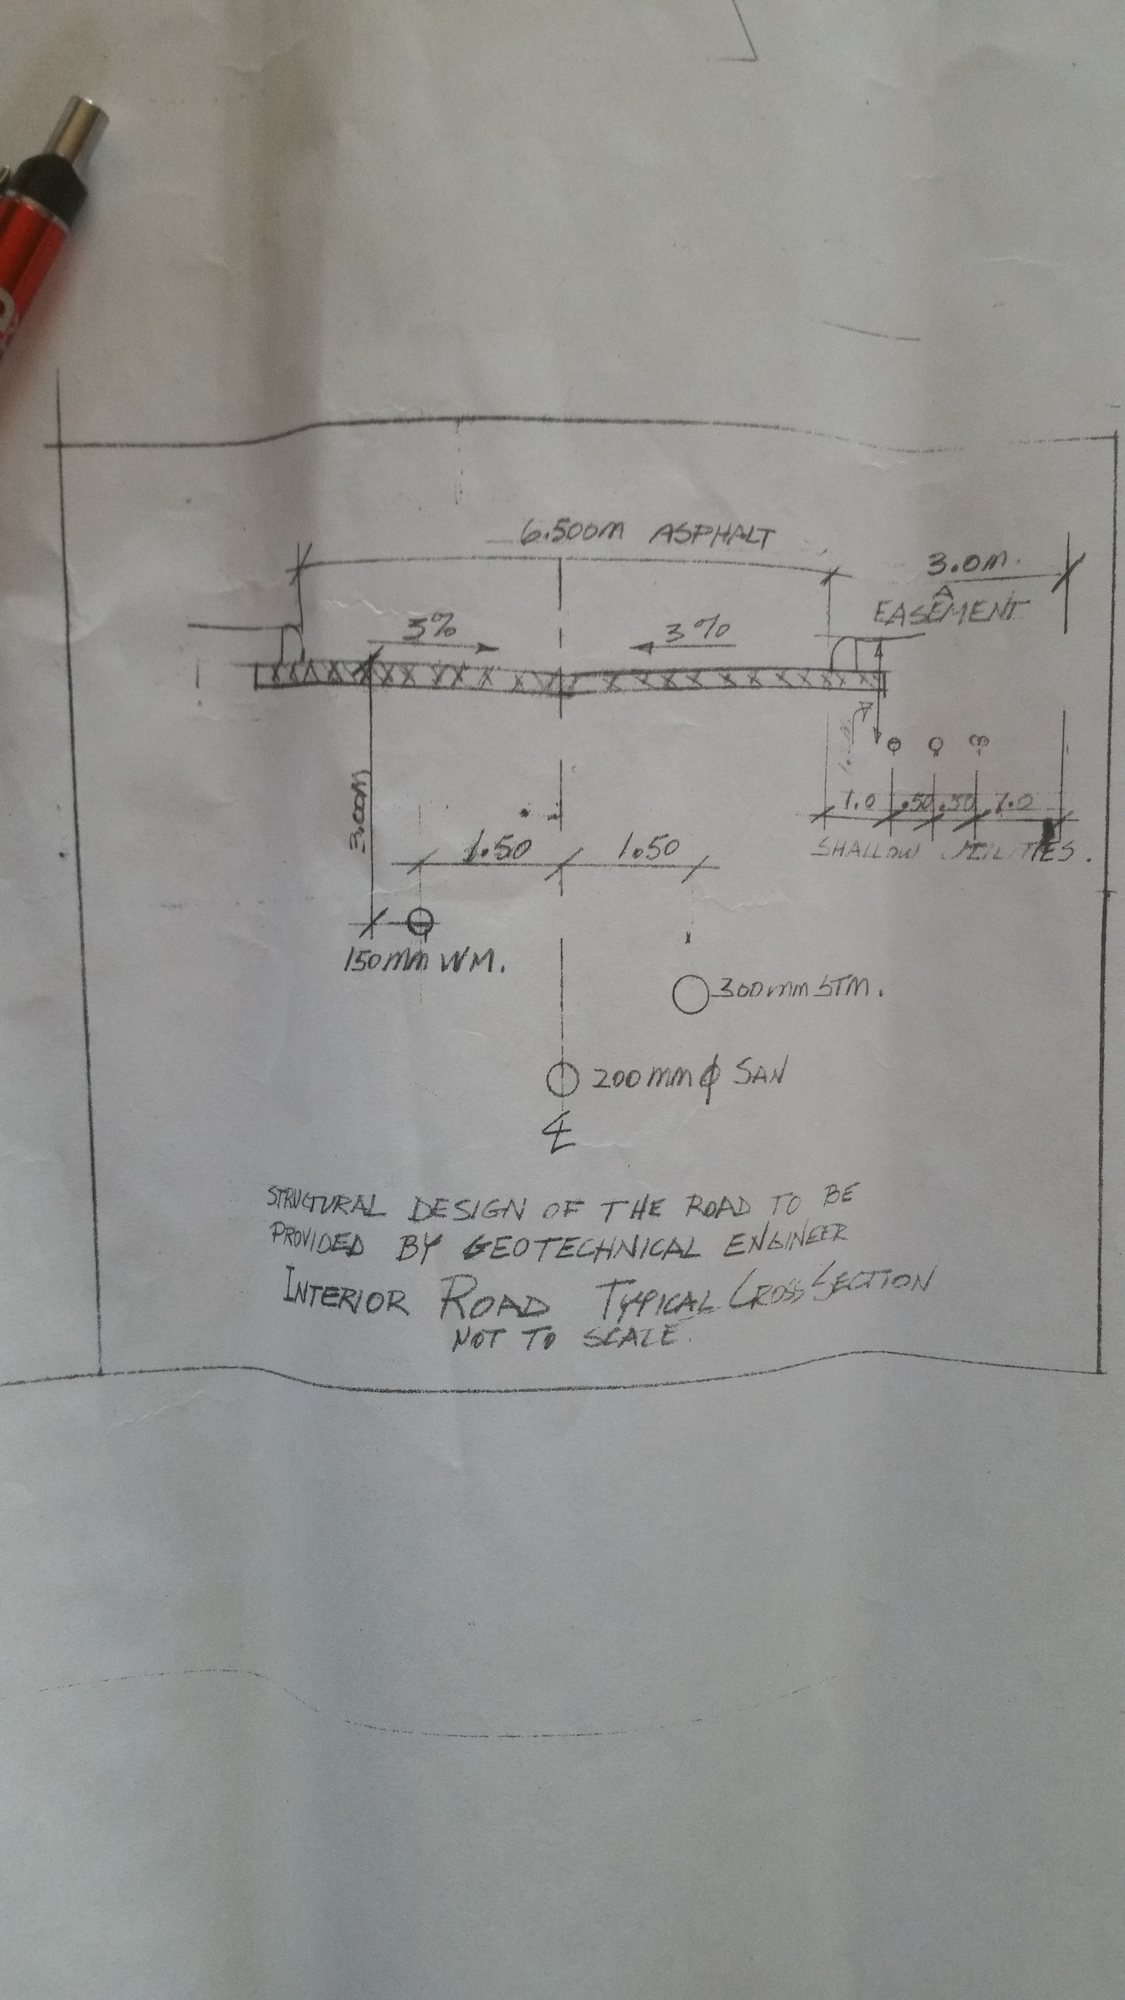 6.500M ASPHALT
3.0M.
A
EASEMENT
3%
3%
3.00M
1.0 .50 .50 1.0
SHALLOW UTILITIES.
1.50 1.50
150mm WM.
300mm STM.
200mmϕ SAN
℄
STRUCTURAL DESIGN OF THE ROAD TO BE
PROVIDED BY GEOTECHNICAL ENGINEER
INTERIOR ROAD TYPICAL CROSS SECTION
NOT TO SCALE.